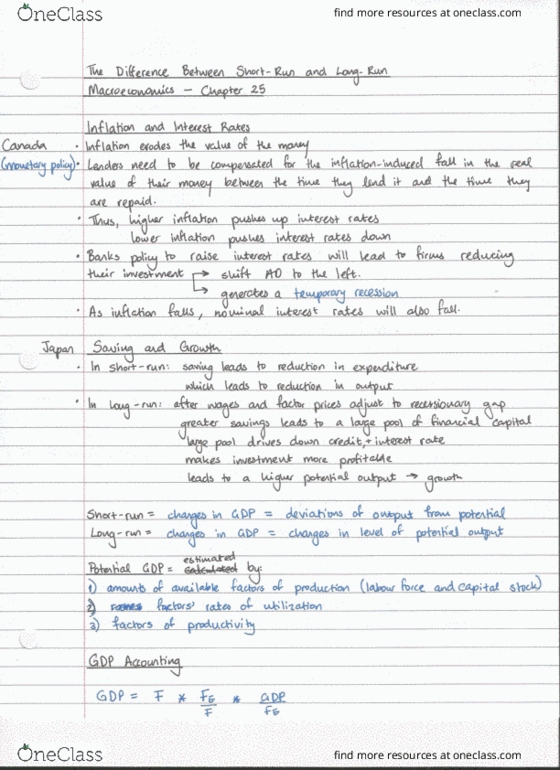 OneClass
find more resources at oneclass.com
The Difference Between Short-Run and Long-Run
Macroeconomics - Chapter 25
Inflation and Interest Rates
Canada · Inflation erodes the value of the money
(monetary policy) · Lenders need to be compensated for the inflation-induced fall in the real
value of their money between the time they lend it and the time they
are repaid.
· Thus, higher inflation pushes up interest rates
lower inflation pushes interest rates down
· Banks policy to raise interest rates will lead to firms reducing
their investment → shift AD to the left.
→ generates a temporary recession
· As inflation falls, nominal interest rates will also fall.
Japan Saving and Growth
· In short-run: saving leads to reduction in expenditure
which leads to reduction in output
· In long-run: after wages and factor prices adjust to recessionary gap
greater savings leads to a large pool of financial capital
large pool drives down credit, + interest rate
makes investment more profitable
leads to a higher potential output → growth
Short-run = changes in GDP = deviations of output from potential
Long-run = changes in GDP = changes in level of potential output
estimated
Potential GDP = calculated by:
1) amounts of available factors of production (labour force and capital stock)
2) factors' rates of utilization
3) factors of productivity
GDP Accounting
GDP = F * FE/F * GDP/FE
OneClass
find more resources at oneclass.com